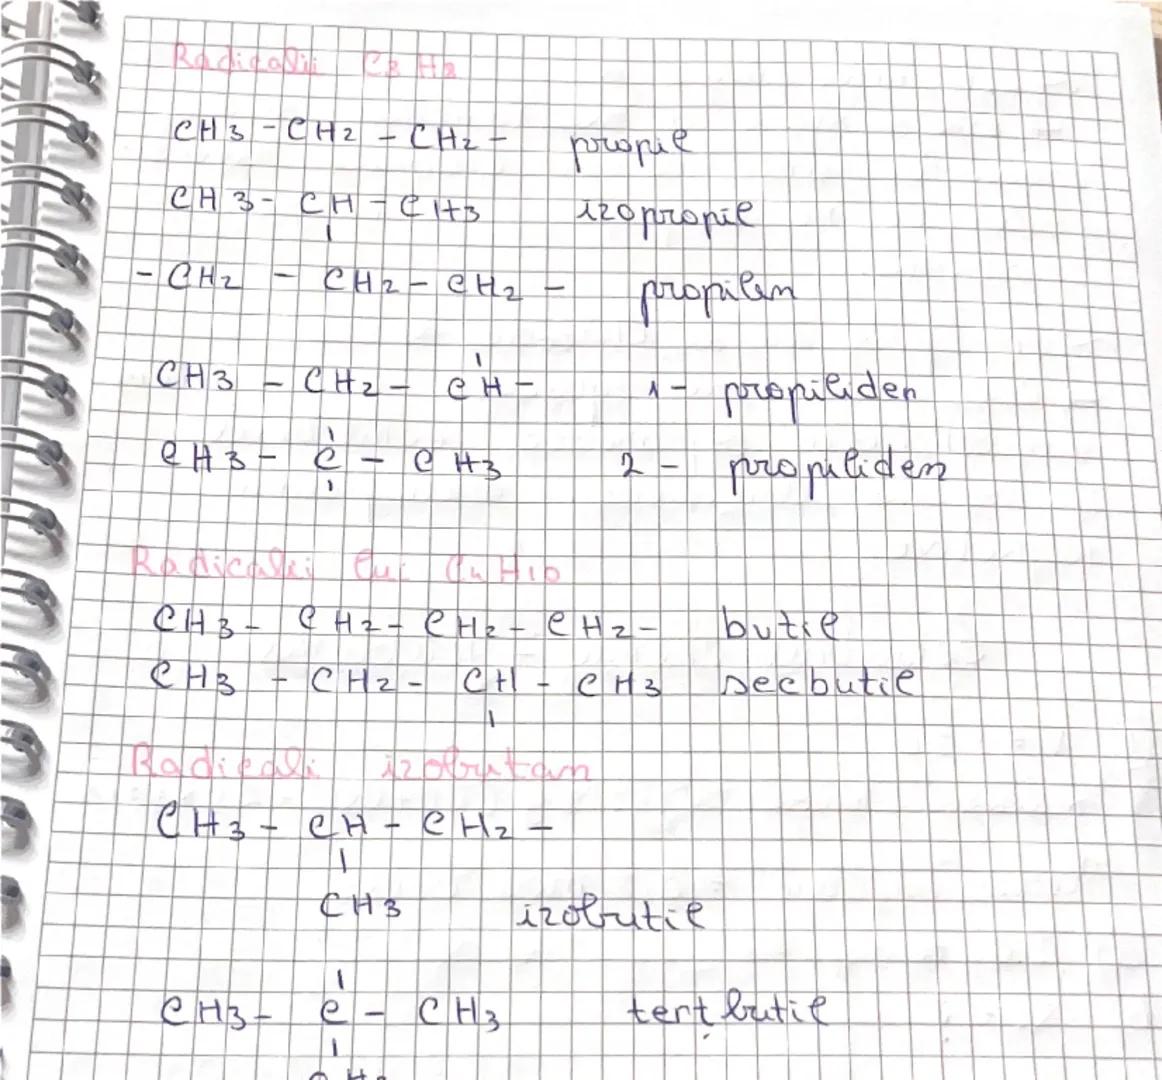 Radicalii C3H8
CH3 - CH2 - CH2 - propil
CH3 - CH - CH3 izopropil
|
- CH2 - CH2 - CH2 - propilen
|
CH3 - CH2 - CH - 1 - propiliden
|
CH3 - C - CH3 2 - propiliden
|
Radicalii lui C4H10
CH3 - CH2 - CH2 - CH2 - butil
CH3 - CH2 - CH - CH3 secbutil
|
Radicali izobutan
CH3 - CH - CH2 -
|
CH3 izobutil
|
CH3 - C - CH3 tertbutil
|